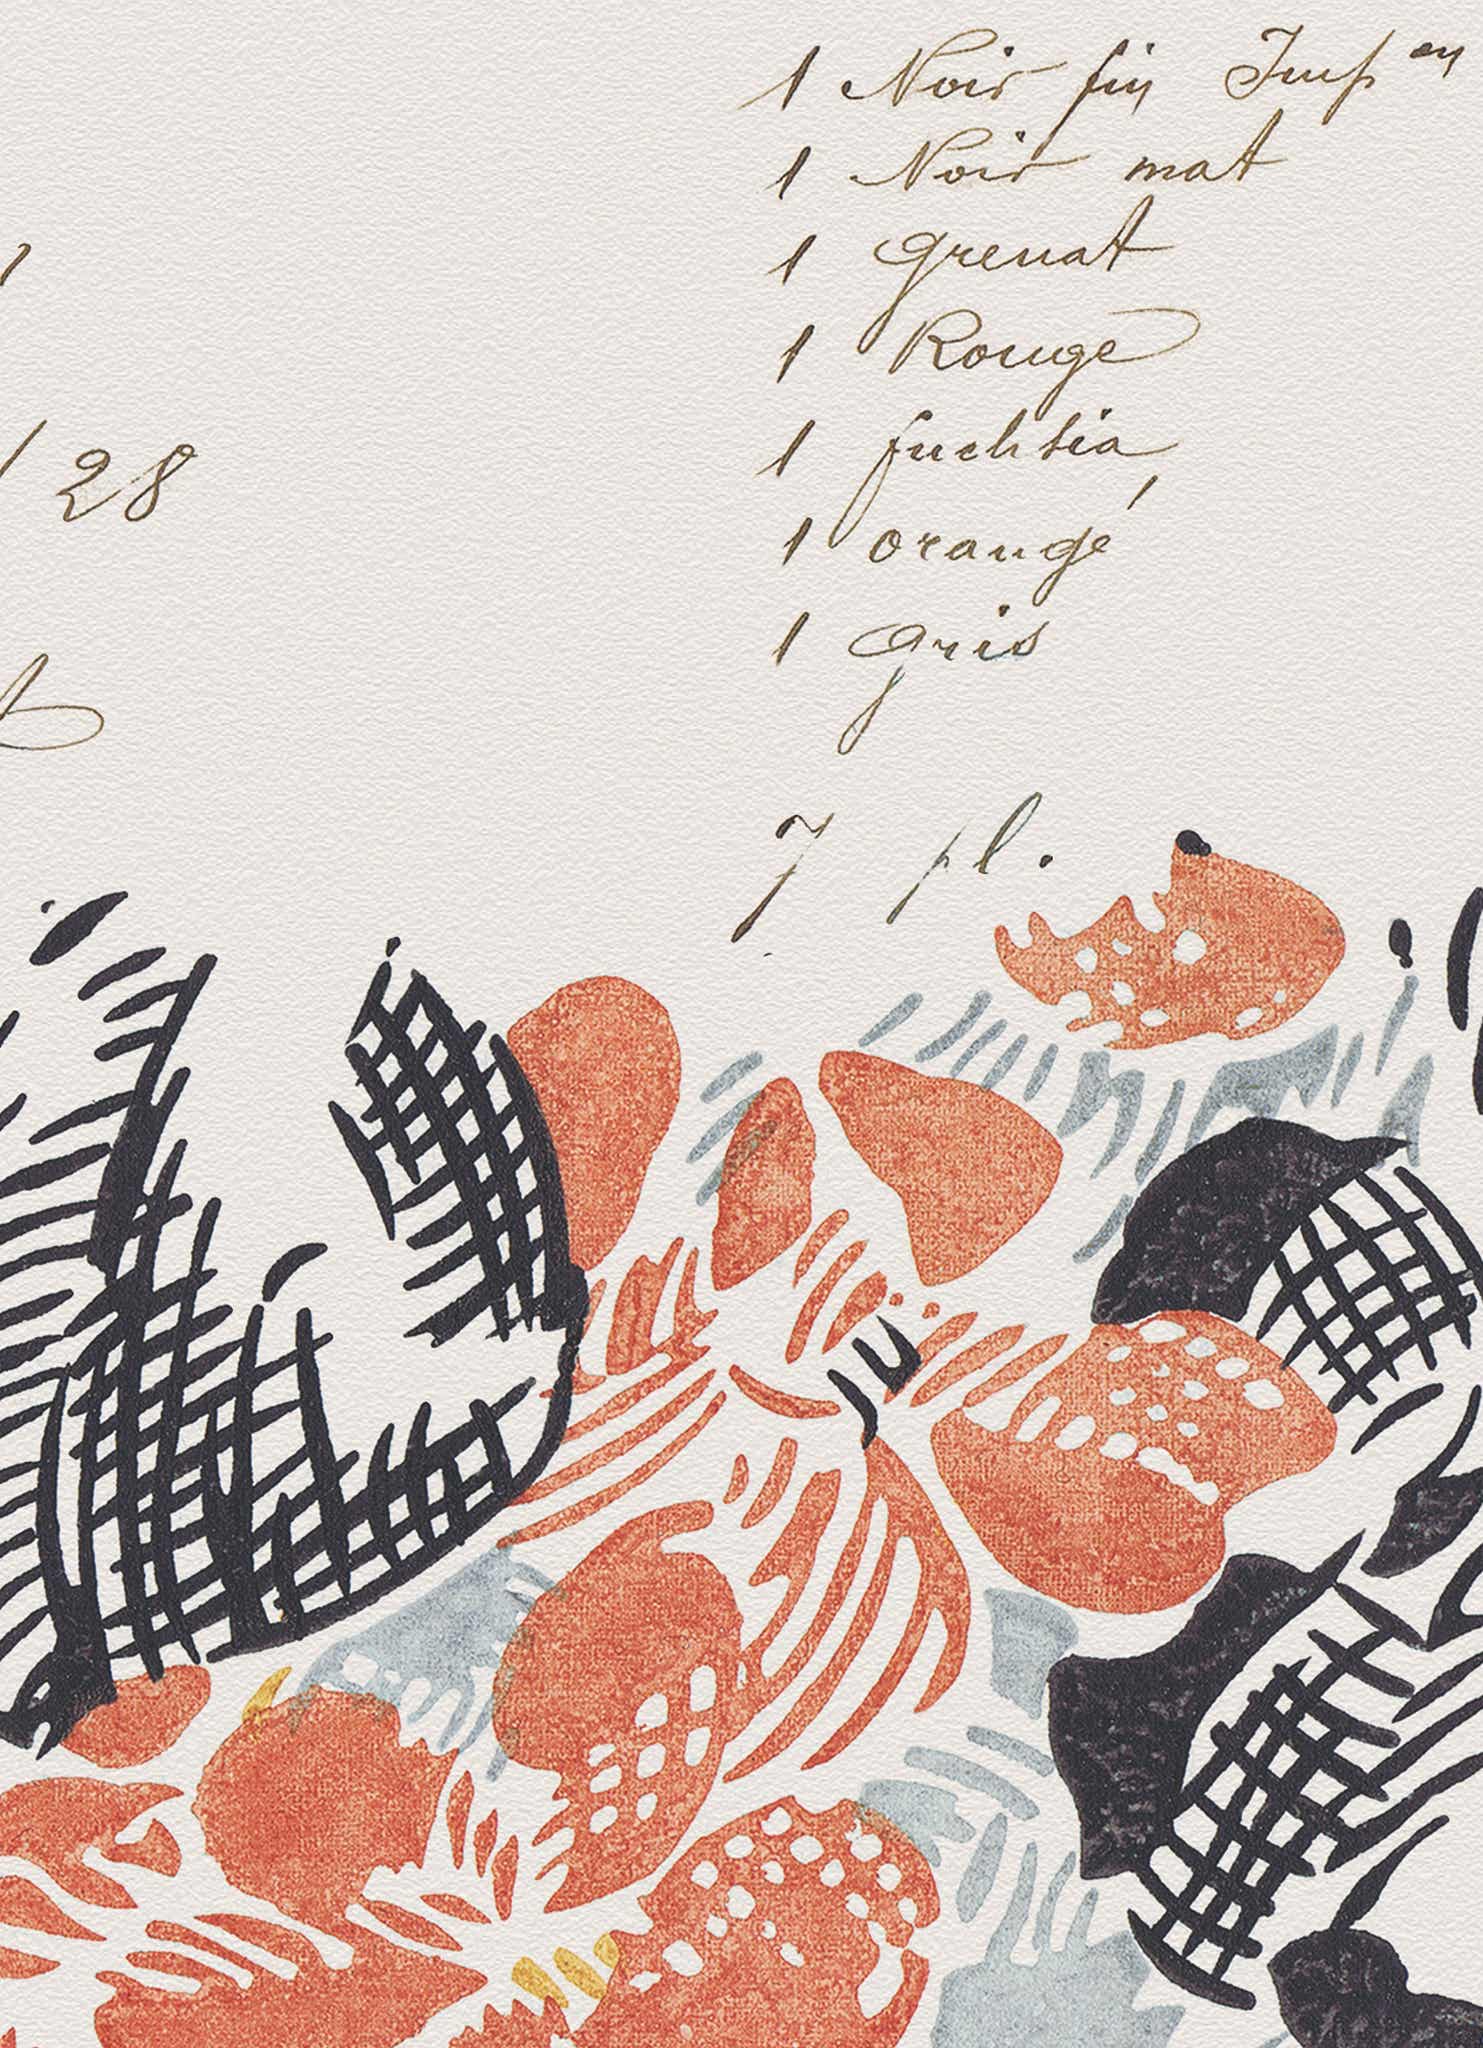 1 Noir fin Imp on
1 Noir mat
1 grenat
1 Rouge
1 fuchsia
28
1 orangé
1 gris
7 pl.